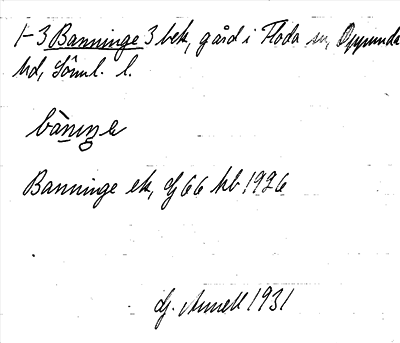 1-3 Banninge 3 bek, gård i Floda sn, Oppunda
hd, Söml. l.
bàniŋe
Banninge ek, Gj 66 hb 1926
G. Annell 1931